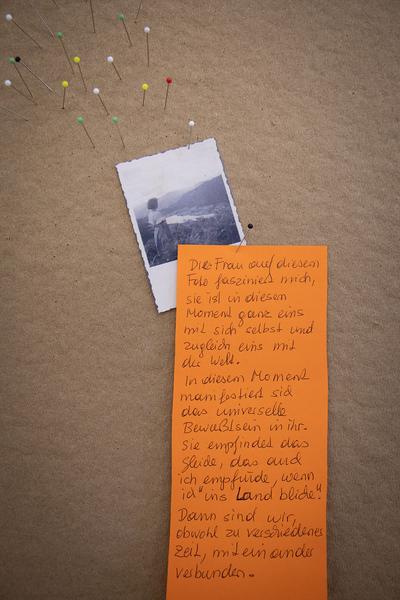 Die Frau auf diesem
Foto fasziniert mich,
sie ist in diesem
Moment ganz eins
mit sich selbst und
zugleich eins mit
der Welt.
In diesem Moment
manifestiert sich
das universelle
Bewußtsein in ihr.
Sie empfindet das
Gleiche, das auch
ich empfinde, wenn
ich "ins Land blicke".
Dann sind wir,
obwohl zu verschiedener
Zeit, miteinander
verbunden.